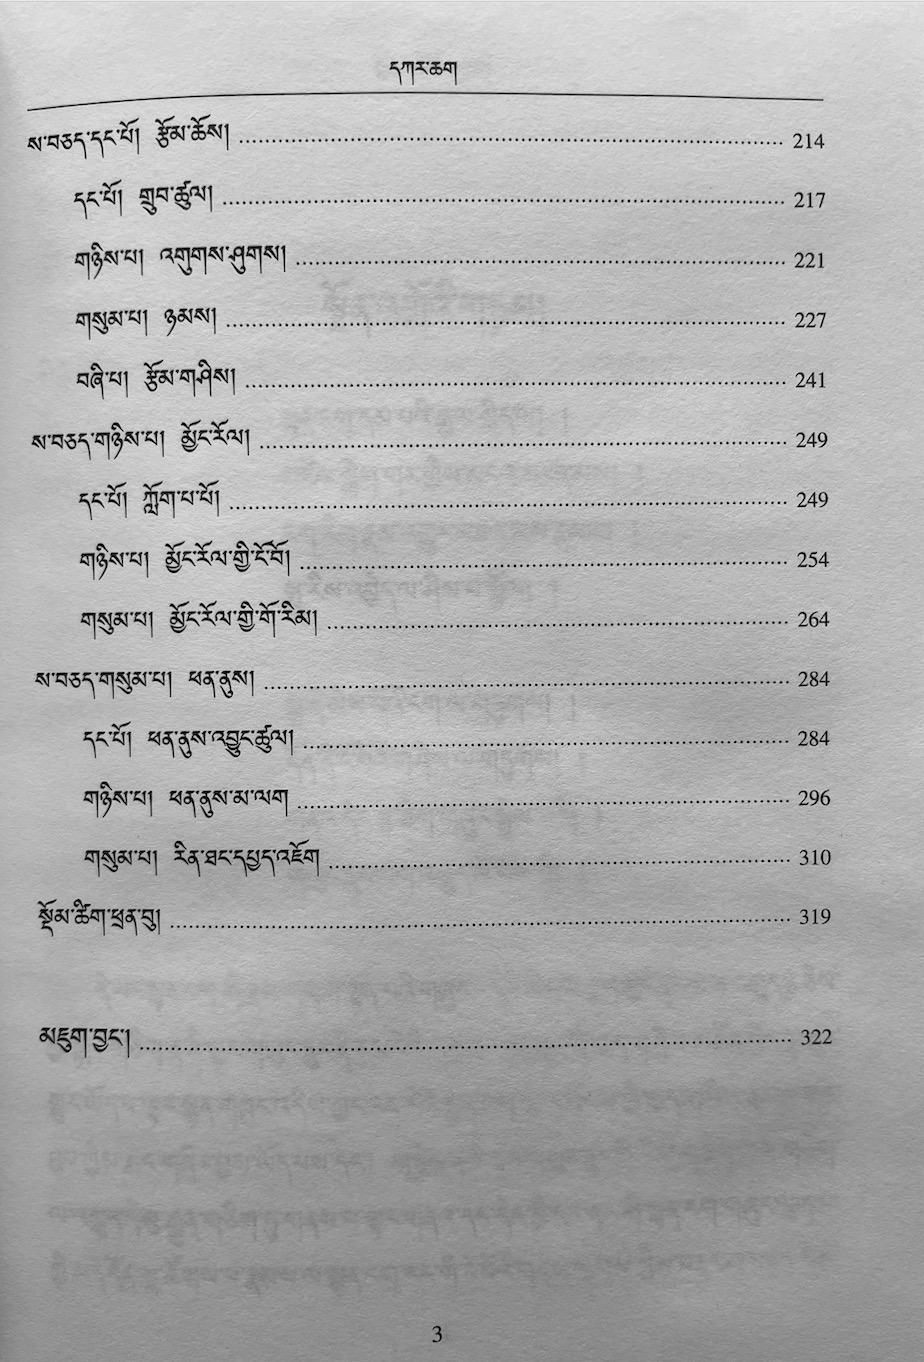 དཀར་ཆག
ས་བཅད་དང་པོ། རྩོམ་ཆོས། ........ 214
དང་པོ། གྲུབ་ཚུལ། ........ 217
གཉིས་པ། འགུགས་ཤུགས། ........ 221
གསུམ་པ། ཉམས། ........ 227
བཞི་པ། རྩོམ་གཤིས། ........ 241
ས་བཅད་གཉིས་པ། མྱོང་རོལ། ........ 249
དང་པོ། ཀློག་པ་པོ། ........ 249
གཉིས་པ། མྱོང་རོལ་གྱི་ངོ་བོ། ........ 254
གསུམ་པ། མྱོང་རོལ་གྱི་གོ་རིམ། ........ 264
ས་བཅད་གསུམ་པ། ཕན་ནུས། ........ 284
དང་པོ། ཕན་ནུས་འབྱུང་ཚུལ། ........ 284
གཉིས་པ། ཕན་ནུས་མ་ལག ........ 296
གསུམ་པ། རིན་ཐང་དཔྱད་འཇོག ........ 310
སྡོམ་ཚིག་ཕྲན་བུ། ........ 319
མཇུག་བྱང་། ........ 322
3